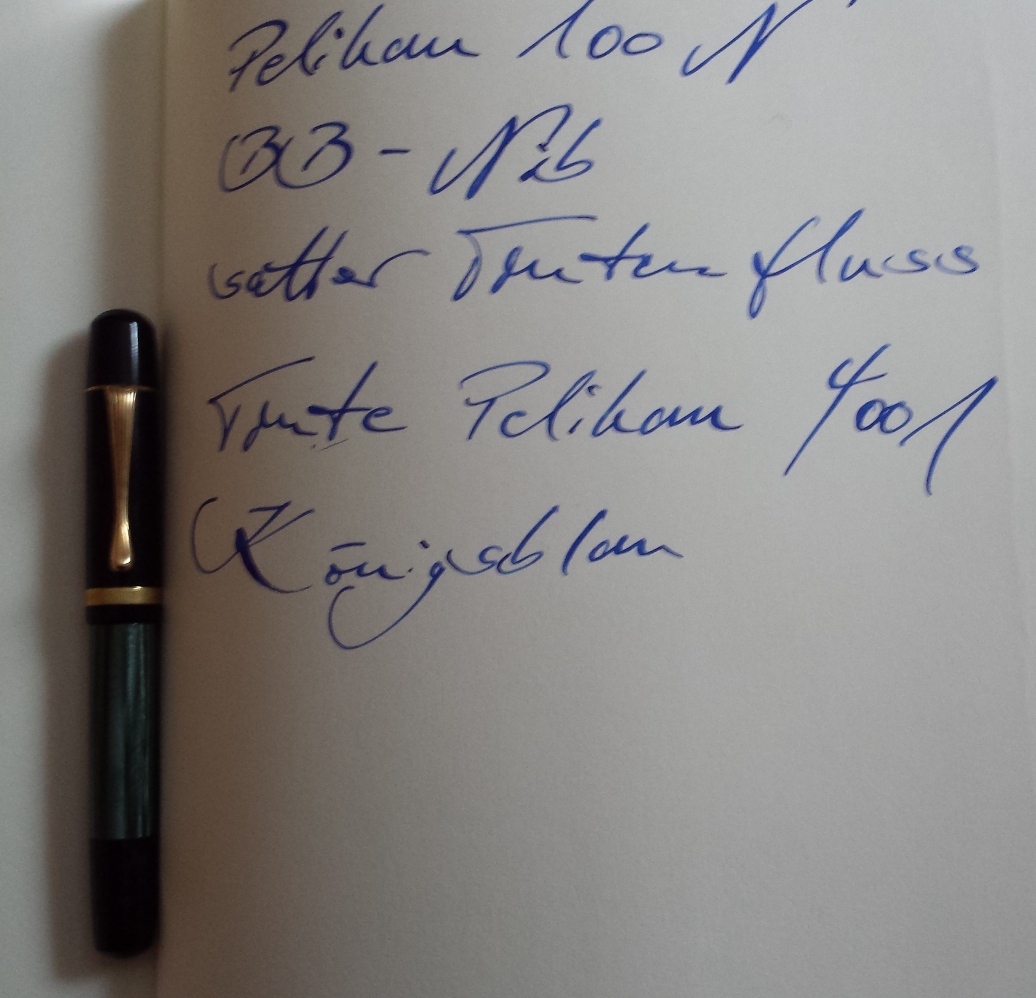 Pelikan 100 N
BB - Nib
satter Tintenfluss
Tinte Pelikan 4001
Königsblau